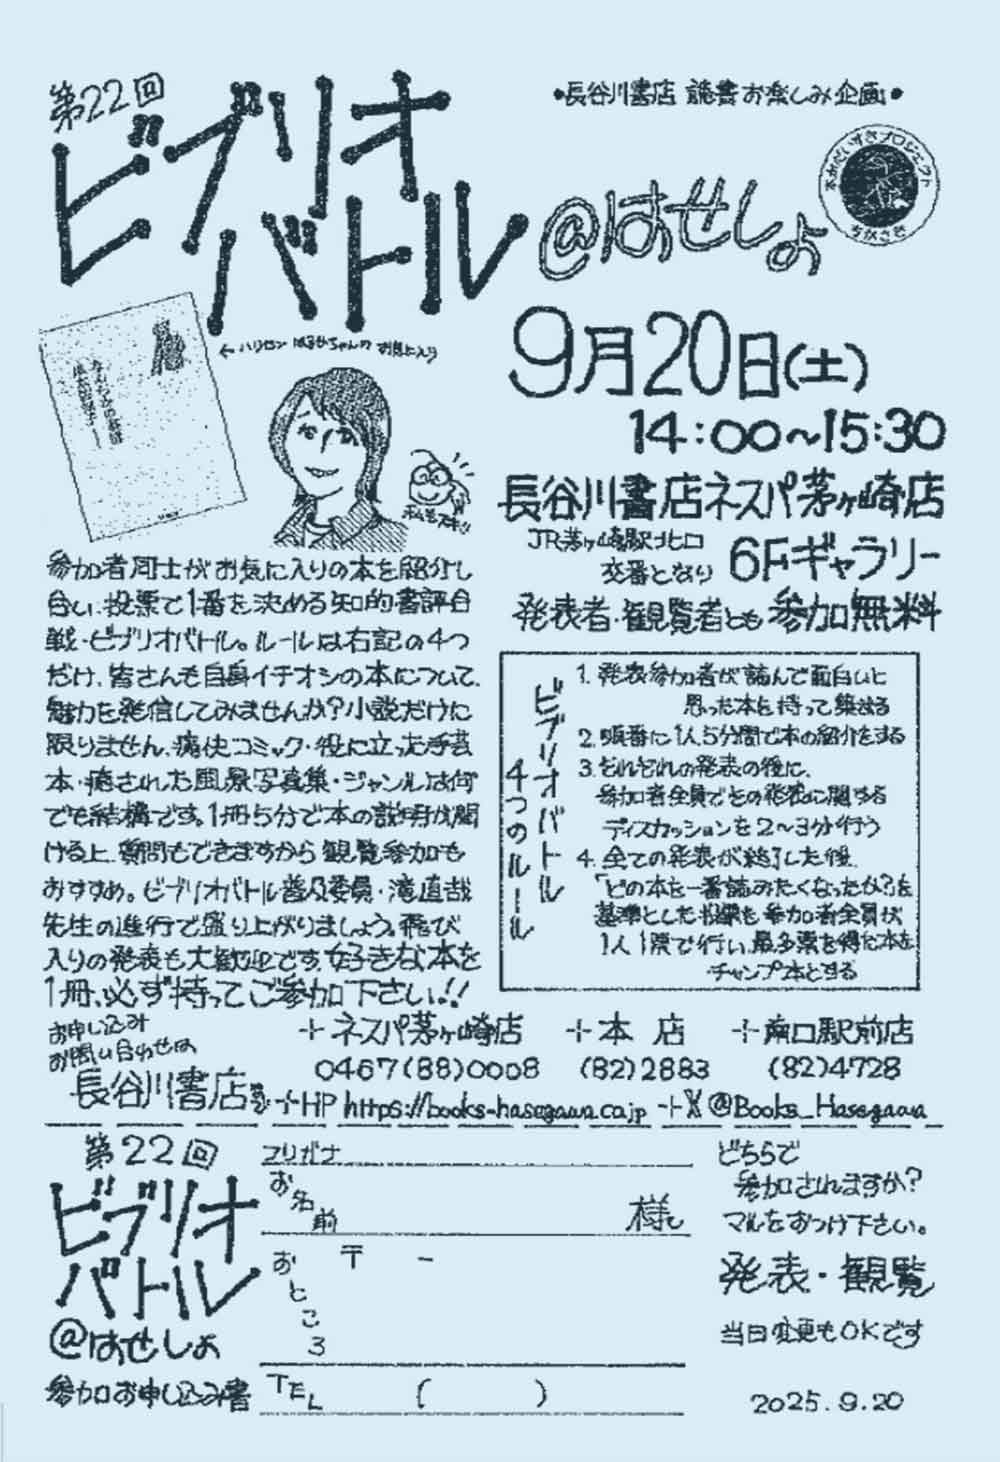 第22回
ビブリオ
バトル
@はせしょ
•長谷川書店 読書お楽しみ企画•
本がだいすきプロジェクト
ちがさき
← ハリセン はるかちゃんの お気に入り
9月20日(土)
14:00~15:30
長谷川書店ネスパ茅ヶ崎店
JR茅ヶ崎駅北口
交番となり
6Fギャラリー
発表者・観覧者とも参加無料
参加者同士がお気に入りの本を紹介し
合い、投票で1番を決める知的書評合
戦・ビブリオバトル。ルールは右記の4つ
だけ、皆さんも自身イチオシの本について、
魅力を発信してみませんか?小説だけに
限りません、痛快コミック・役に立った手芸
本・癒された風景写真集・ジャンルは何
でも結構です。1冊5分で本の説明が聞
ける上、質問もできますから観覧参加も
おすすめ。ビブリオバトル普及委員・滝直哉
先生の進行で盛り上がりましょう。飛び
入りの発表も大歓迎です。好きな本を
1冊、必ず持ってご参加下さい!!
ビブリオバトル
4つのルール
1. 発表参加者が読んで面白いと
思った本を持って集まる
2. 順番に1人5分間で本の紹介をする
3. それぞれの発表の後に、
参加者全員でその発表に関する
ディスカッションを2~3分行う
4. 全ての発表が終了した後、
「どの本を一番読みたくなったか?」を
基準とした投票を参加者全員が
1人1票で行い、最多票を得た本を
チャンプ本とする
お申し込み
お問い合わせは
長谷川書店
ネスパ茅ヶ崎店
0467(88)0008
本店
(82)2883
南口駅前店
(82)4728
HP https://books-hasegawa.co.jp
X @Books_Hasegawa
第22回
ビブリオ
バトル
@はせしょ
参加お申し込み書
フリガナ
お名前
様
おところ
〒 -
TEL ( )
どちらで
参加されますか?
マルをおつけ下さい。
発表・観覧
当日変更もOKです
2025.9.20